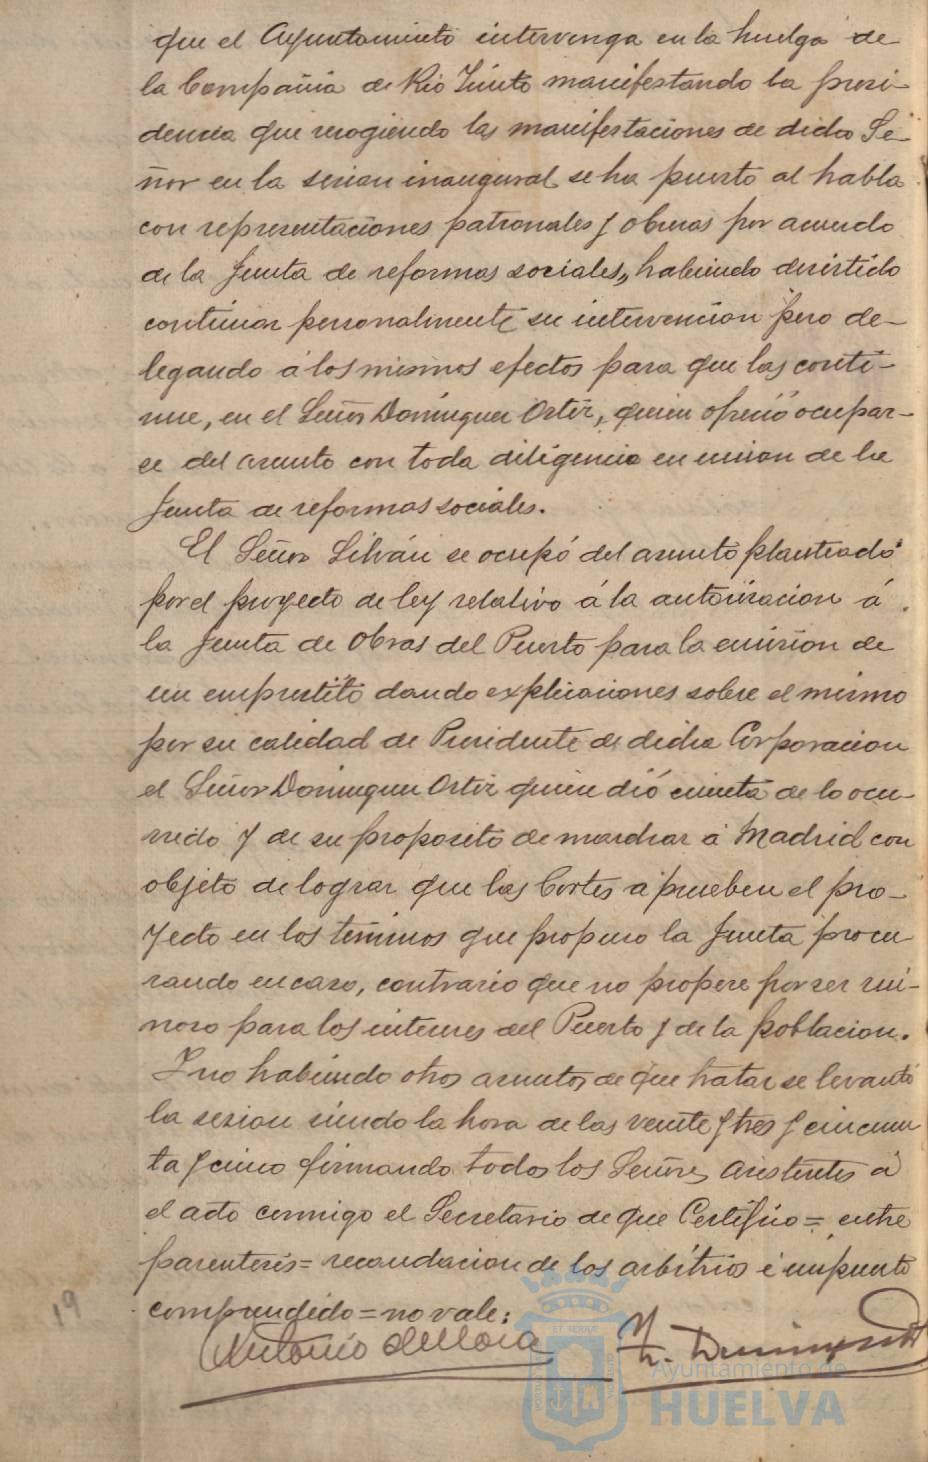 que el Ayuntamiento intervenga en la huelga de
la Compañia de Rio Tinto manifestando la presi-
dencia que recogiendo las manifestaciones de dicho Se-
ñor en la sesion inaugural se ha puesto al habla
con representaciones patronales y obreras por acuerdo
de la Junta de reformas sociales, habiendo desistido
continuar personalmente su intervencion pero de-
legando á los mismos efectos para que las conti-
nue, en el Señor Dominguez Ortiz, quien ofreció ocupar-
se del asunto con toda diligencia en union de la
Junta de reformas sociales.
El Señor Silván se ocupó del asunto planteado
por el proyecto de ley relativo á la autorizacion á
la Junta de Obras del Puerto para la emision de
un emprestito dando explicaciones sobre el mismo
por su calidad de Presidente de dicha Corporacion
el Señor Dominguez Ortiz quien dió cuenta de lo ocu-
rrido y de su proposito de marchar á Madrid con
objeto de lograr que las Cortes aprueben el pro-
yecto en los términos que propuso la Junta procu
rando en caso, contrario que no prospere por ser rui-
noso para los intereses del Puerto y de la poblacion.
Y no habiendo otros asuntos de que tratar se levantó
la sesion siendo la hora de las veinte y tres y cincuen
ta y cinco firmando todos los Señores asistentes á
el acto conmigo el Secretario de que Certifico = entre
parentesis = recaudacion de los arbitrios é impuesto
comprendido = no vale:
19
Antonio de Mora
Ayuntamiento de
HUELVA